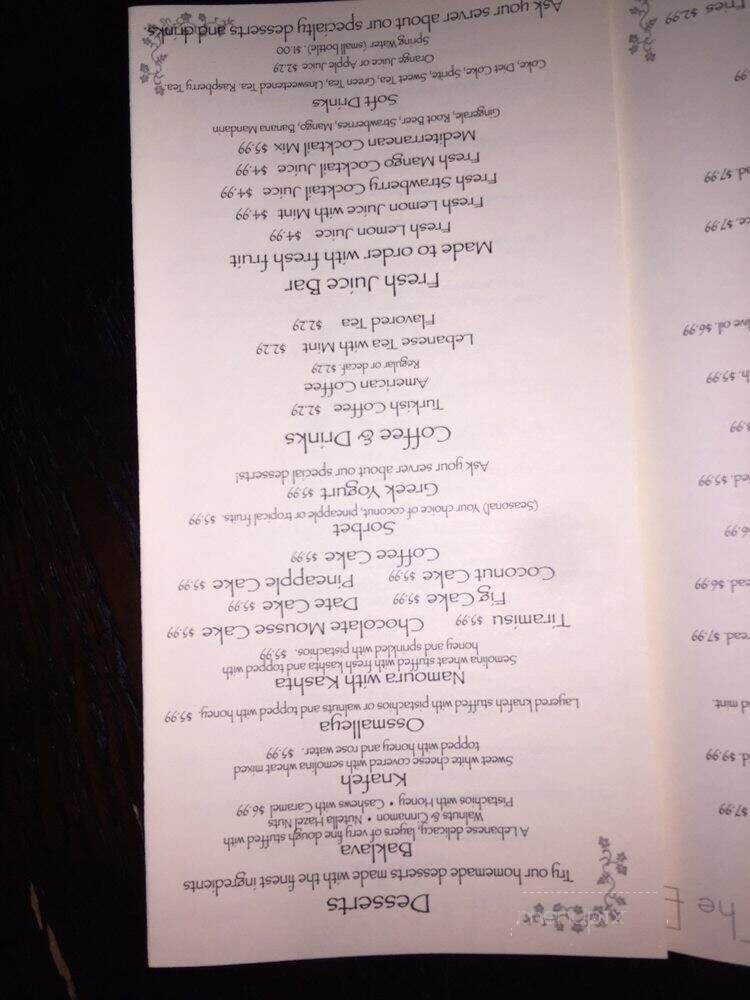 Desserts
Try our homemade desserts made with the finest ingredients
Baklava
A Lebanese delicacy, layers of very fine dough stuffed with
Walnuts & Cinnamon • Nutella Hazel Nuts
Pistachios with Honey • Cashews with Caramel $6.99
Knafeh
Sweet white cheese covered with semolina wheat mixed
topped with honey and rose water. $5.99
Ossmalleya
Layered knafeh stuffed with pistachios or walnuts and topped with honey. $5.99
Namoura with Kashta
Semolina wheat stuffed with fresh kashta and topped with
honey and sprinkled with pistachios. $5.99
Tiramisu $5.99 Chocolate Mousse Cake $5.99
Fig Cake $5.99 Date Cake $5.99
Coconut Cake $5.99 Pineapple Cake $5.99
Coffee Cake $5.99
Sorbet
(Seasonal) Your choice of coconut, pineapple or tropical fruits. $5.99
Greek Yogurt $5.99
Ask your server about our special desserts!
Coffee & Drinks
Turkish Coffee $2.29
American Coffee
Regular or decaf. $2.29
Lebanese Tea with Mint $2.29
Flavored Tea $2.29
Fresh Juice Bar
Made to order with fresh fruit
Fresh Lemon Juice $4.99
Fresh Lemon Juice with Mint $4.99
Fresh Strawberry Cocktail Juice $4.99
Fresh Mango Cocktail Juice $4.99
Mediterranean Cocktail Mix $5.99
Gingerale, Root Beer, Strawberries, Mango, Banana Mandarin
Soft Drinks
Coke, Diet Coke, Sprite, Sweet Tea, Green Tea, Unsweetened Tea. Raspberry Tea.
Orange Juice or Apple Juice $2.29
Spring Water (small bottle). $1.00
Ask your server about our specialty desserts and drinks.
he E
$7.99
d. $9.99
d mint.
read. $7.99
ead. $6.99
$6.99
ed. $5.99
h. $5.99
live oil. $6.99
ce. $7.99
ad. $7.99
Fries $2.99
menupix